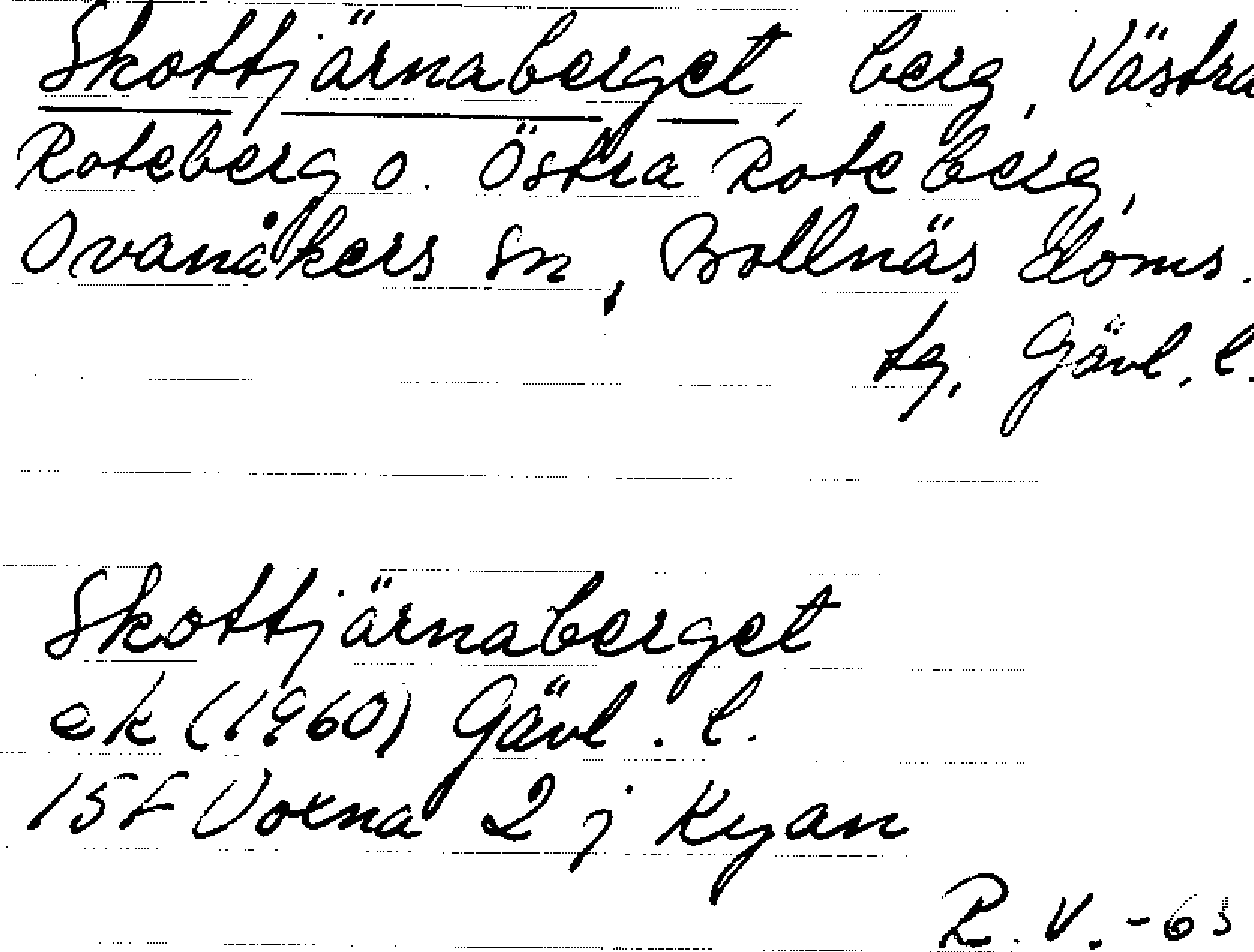 Skottjärnaberget, berg, Västra
Roteberg o. Östra Roteberg,
Ovanåkers sn, Bollnäs doms.
tg, Gävl. l.
Skottjärnaberget
ek (1960) Gävl. l.
15F Voxna 2 j Kyan
R. V. -63